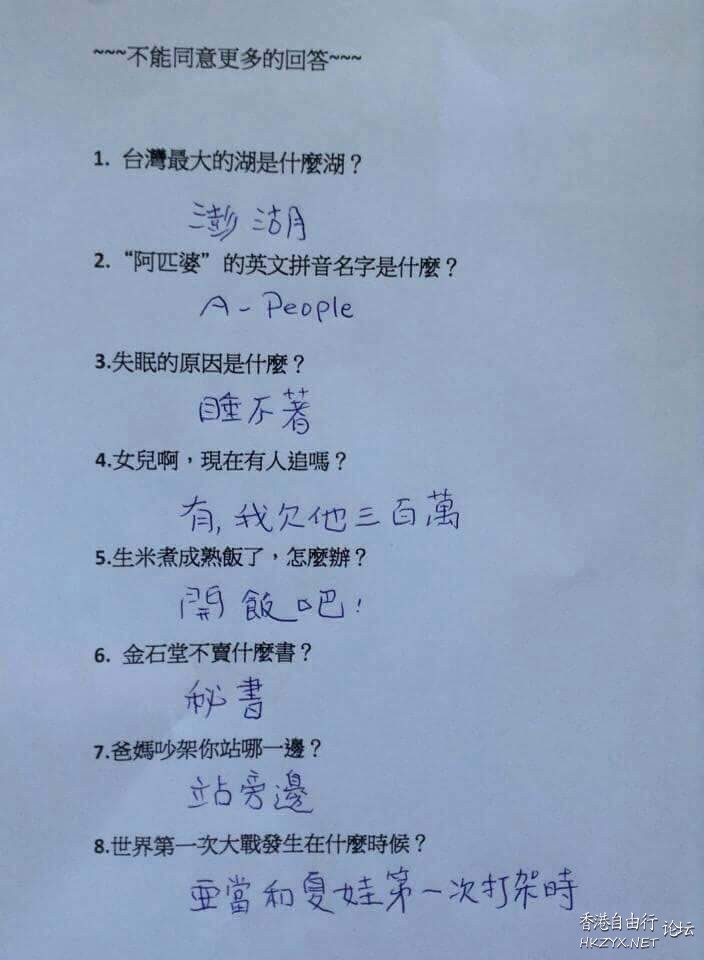 ~~~不能同意更多的回答~~~
1. 台灣最大的湖是什麼湖？
澎湖
2. “阿匹婆”的英文拼音名字是什麼？
A-People
3.失眠的原因是什麼？
睡不著
4.女兒啊，現在有人追嗎？
有,我欠他三百萬
5.生米煮成熟飯了，怎麼辦？
開飯吧!
6. 金石堂不賣什麼書？
秘書
7.爸媽吵架你站哪一邊？
站旁邊
8.世界第一次大戰發生在什麼時候？
亞當和夏娃第一次打架時
香港自由行论坛
HKZYX.NET